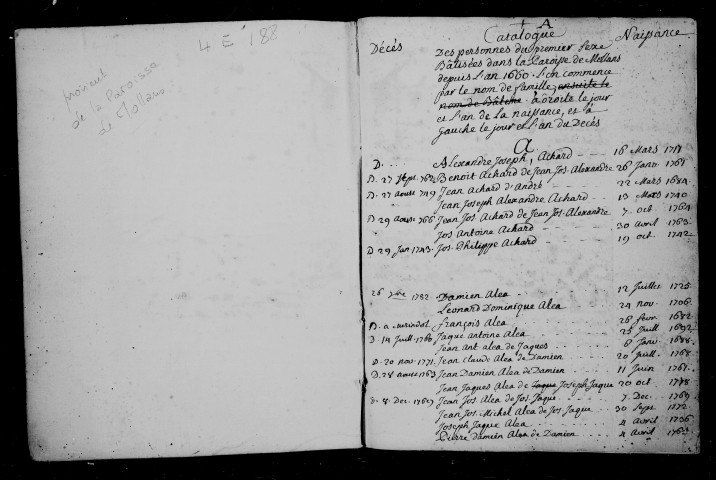 4 E 188
provient
de la Paroisse
de Mollans
+ A
Décés Catalogue Naissance
Des personnes du premier Sexe
Bâtisées dans la Paroisse de Mollans
depuis L'an 1660. L'on commence
par le nom de famille, ensuite le
nom de Bâteme. à droite le jour
et L'an de la naissance, et à
gauche le jour et L'an du Decés
A
D. Alexandre Joseph Achard 16 Mars 1717
D. 27 Sept. Benoit Achard de Jean Jos. Alexandre 26 Janv. 1761
D. 27 aoust 1749 Jean Achard d'André 22 Mars 1684
Jean Joseph Alexandre Achard 13 Mars 1740
D. 29 aoust 1766 Jean Jos Achard de Jean Jos. Alexandre 7 oct 1764
Jos Antoine Achard 30 avril 1763
D. 29 Jan 1743 Jos. Philippe Achard 19 oct. 1742
26 7bre 1782 Damien Alea 12 Juillet 1725
Leonard Dominique Alea 24 nov. 1706
D. a Merindol françois Alea 26 fevr 1682
D. 14 Juill 1760 Jaque antoine Alea 25 Juill 1692
Jean Ant alea de Jaques 6 Janv 1688
D. 20 nov. 1771 Jean Claude Alea de Damien 20 Juill. 1768
D. 28 aoust 1763 Jean Damien Alea de Damien 11 Juin 1761
Jean Jaques Alea de Jaque Joseph Jaque 20 oct 1778
D. 8 Dec. 1769 Jean Jos Alea de Jos Jaque 7 Dec. 1769
Jean Jos. Michel Alea de Jos Jaque 30 Sept. 1772
Joseph Jaque Alea 4 Avril 1736
Pierre Damien Alea de Damien 4 Avril